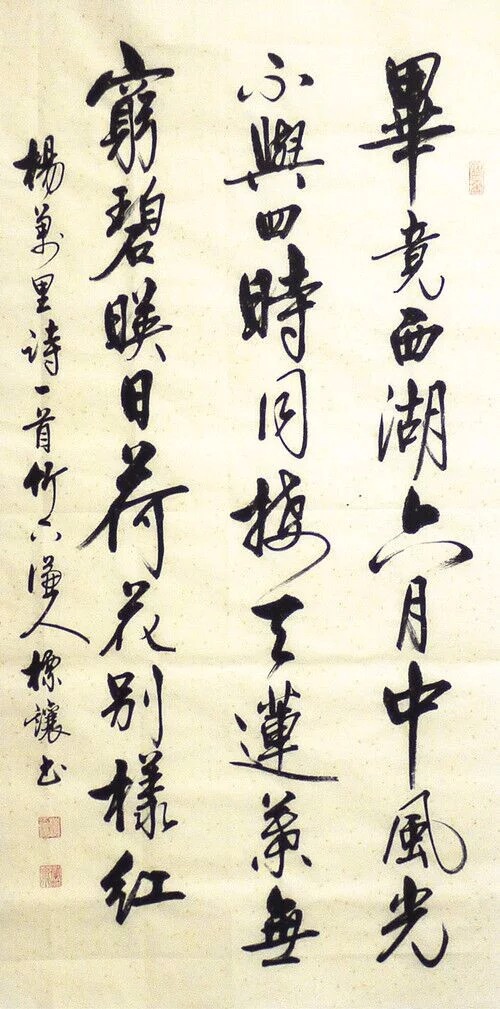 畢竟西湖六月中風光
不與四時同接天蓮葉無
窮碧暎日荷花別樣紅
楊萬里詩一首竹人標讓書